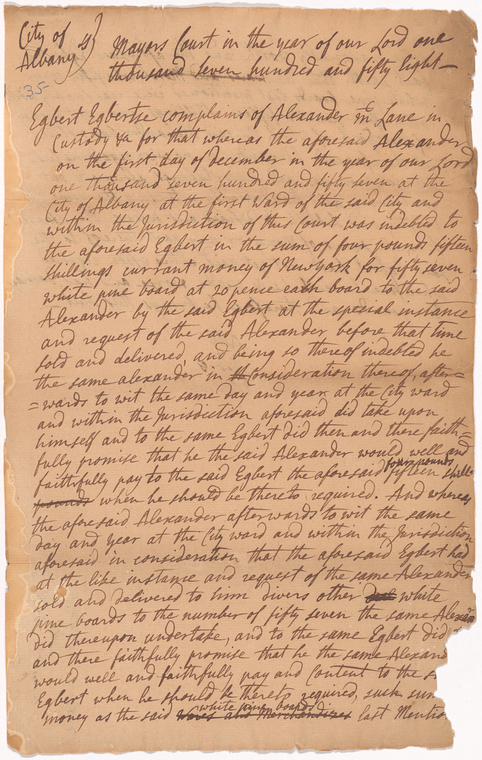 City of
Albany
Mayors Court in the year of our Lord one
thousand seven hundred and fifty Eight —
35
Egbert Egbertse complains of Alexander Mc Lane in
Custody &a for that whereas the aforesaid Alexander
on the first day of December in the year of our Lord
one thousand seven hundred and fifty seven at the
City of Albany at the first Ward of the said City and
within the Jurisdiction of this Court was indebted to
the aforesaid Egbert in the sum of four pounds fifteen
shillings currant money of Newyork for fifty seven
white pine board at 20 pence each board to the said
Alexander by the said Egbert at the special instance
and request of the said Alexander before that time
sold and delivered, and being so thereof indebted he
the same alexander in Consideration thereof, after=
=wards to wit the same day and year at the City ward
and within the Jurisdiction aforesaid did take upon
himself and to the same Egbert did then and there faith=
fully promise that he the said Alexander would well and
faithfully pay to the said Egbert the aforesaid four pounds fifteen shills
pounds when he should be thereto required. And whereas
the aforesaid Alexander afterwards to wit the same
day and year at the City ward and within the Jurisdiction
aforesaid in consideration that the aforesaid Egbert had
at the like instance and request of the same Alexander
sold and delivered to him divers other white
pine boards to the number of fifty seven the same Alexan
did thereupon undertake, and to the same Egbert did
and there faithfully promise that he the same Alexand
would well and faithfully pay and Content to the s
Egbert when he should be thereto required, such sum
money as the said Wares and Merchandizes white pine boards last Mentio